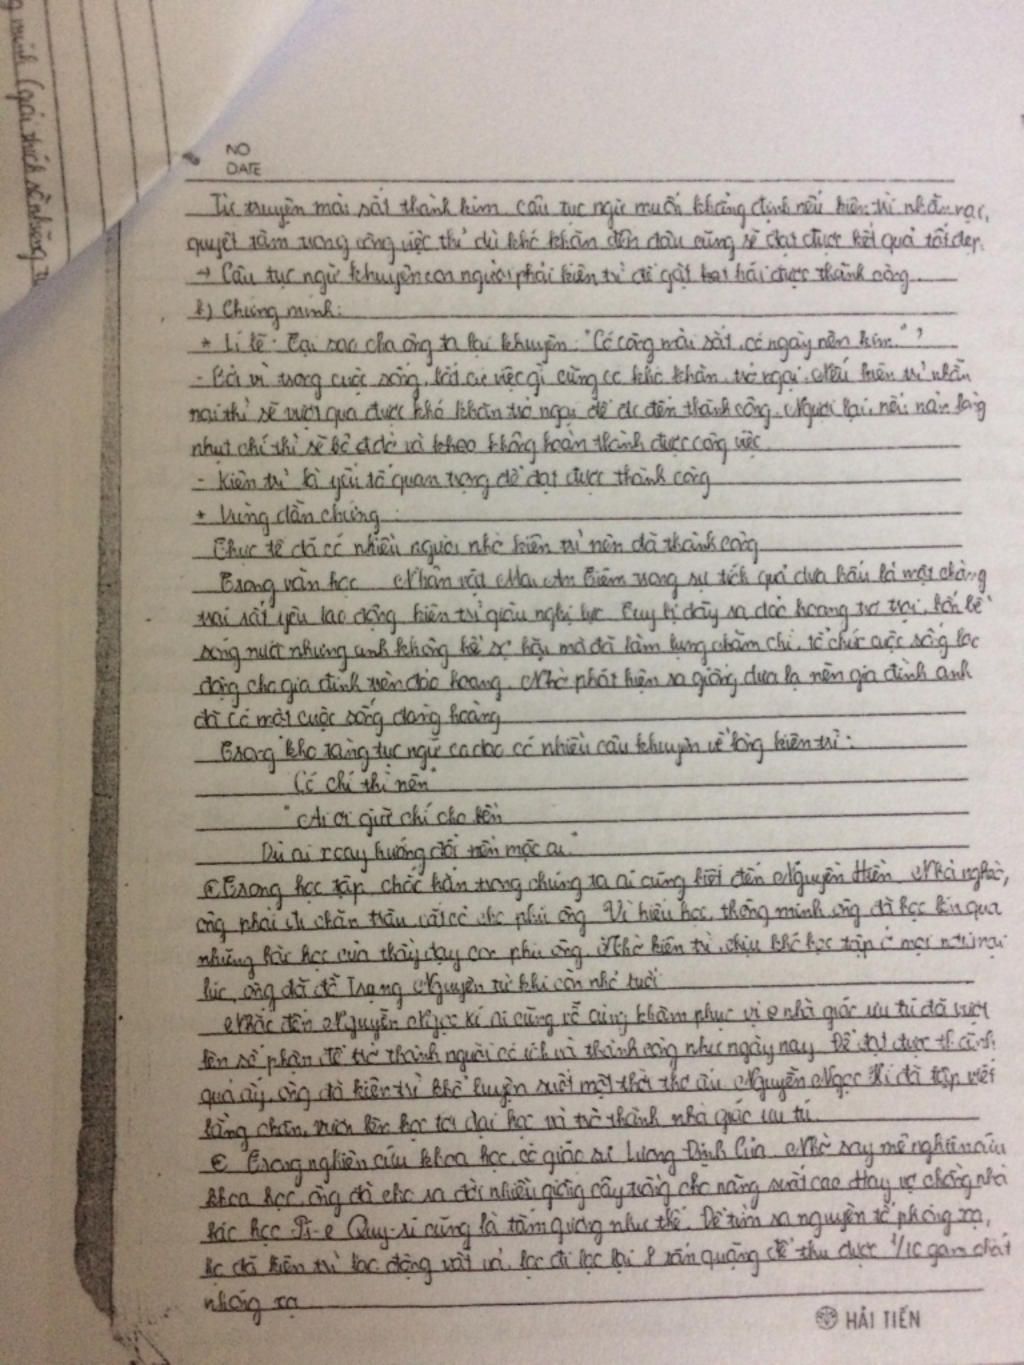 NO
DATE
Từ truyện mài sắt thành kim câu tục ngữ muốn khẳng định nếu kiên trì nhẫn nại,
quyết tâm trong công việc thì dù khó khăn đến đâu cũng sẽ đạt được kết quả tốt đẹp.
→ Câu tục ngữ khuyên con người phải kiên trì để gặt hái được thành công.
b) Chứng minh:
* Lí lẽ: Tại sao cha ông ta lại khuyên: "Có công mài sắt, có ngày nên kim." ?
- Bởi vì trong cuộc sống, bất cứ việc gì cũng có khó khăn, trở ngại. Nếu kiên trì nhẫn
nại thì sẽ vượt qua được khó khăn trở ngại để đi đến thành công. Ngược lại, nếu nản lòng
nhụt chí thì sẽ bỏ dở và không hoàn thành được công việc.
- Kiên trì là yếu tố quan trọng để đạt được thành công
* Dùng dẫn chứng:
Thực tế đã có nhiều người nhờ kiên trì nên đã thành công
Trong văn học Nhân vật Mai An Tiêm trong sự tích quả dưa hấu là một chàng
trai rất yêu lao động kiên trì giàu nghị lực. Tuy bị đày ra đảo hoang trơ trọi, bốn bề
sóng nước nhưng anh không hề sợ hãi mà đã làm lụng chăm chỉ, tổ chức cuộc sống lao
động cho gia đình trên đảo hoang. Nhờ phát hiện ra giống dưa lạ nên gia đình anh
đã có một cuộc sống đàng hoàng
Trong kho tàng tục ngữ ca dao có nhiều câu khuyên về lòng kiên trì:
"Có chí thì nên"
"Ai ơi giữ chí cho bền
Dù ai xoay hướng đổi nền mặc ai."
Trong học tập chắc hẳn trong chúng ta ai cũng biết đến Nguyễn Hiền. Nhà nghèo,
ông phải đi chăn trâu, cắt cỏ cho phú ông. Vì hiếu học, thông minh ông đã học lén qua
những bài học của thầy dạy con phú ông. Nhờ kiên trì, chịu khó học tập ở mọi nơi mọi
lúc, ông đã đỗ Trạng Nguyên từ khi còn nhỏ tuổi
Nhắc đến Nguyễn Ngọc Kí ai cũng vô cùng khâm phục vị nhà giáo ưu tú đã vượt
lên số phận để trở thành người có ích và thành công như ngày nay. Để đạt được thành
quả ấy, ông đã kiên trì khổ luyện suốt một thời thơ ấu. Nguyễn Ngọc Kí đã tập viết
bằng chân, vươn lên học tới đại học và trở thành nhà giáo ưu tú.
Trong nghiên cứu khoa học, có giáo sư Lương Định Của. Nhờ say mê nghiên cứu
khoa học, ông đã cho ra đời nhiều giống cây trồng cho năng suất cao. Hay vợ chồng nhà
bác học Pi-e Quy-ri cũng là tấm gương như thế. Để tìm ra nguyên tố phóng xạ,
họ đã kiên trì lao động vất vả, lọc đi lọc lại 8 tấn quặng để thu được 1/10 gam chất
phóng xạ
HẢI TIẾN